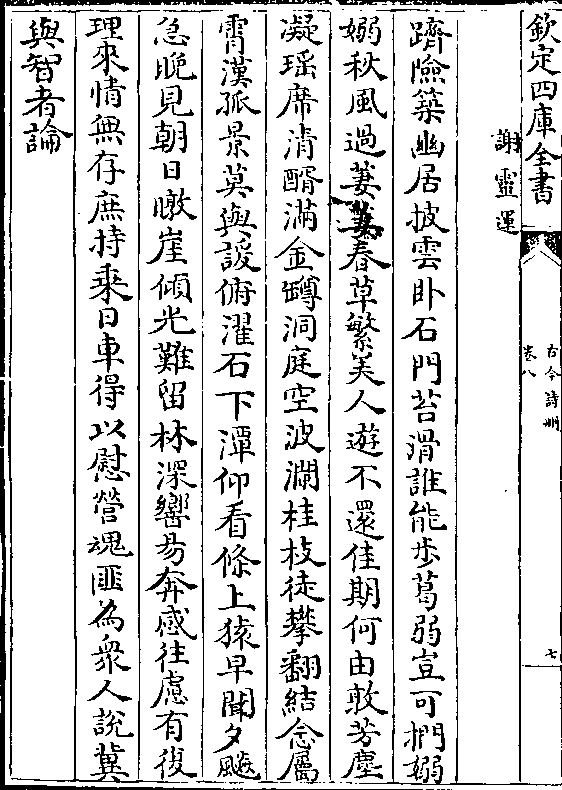 欽定四庫全書
古今詩刪
卷八
七
謝靈運
躋險築幽居披雲卧石門苔滑誰能步葛弱豈可捫嫋
嫋秋風過萋萋春草繁美人遊不還佳期何由敦芳塵
凝瑶席清醑滿金罇洞庭空波瀾桂枝徒攀翻結念屬
霄漢孤景莫與諼俯濯石下潭仰看條上猿早聞夕飈
急晚見朝日暾崖傾光難留林深響易奔感往慮有復
理來情無存庶持乘日車得以慰營魂匪為衆人說冀
與智者論